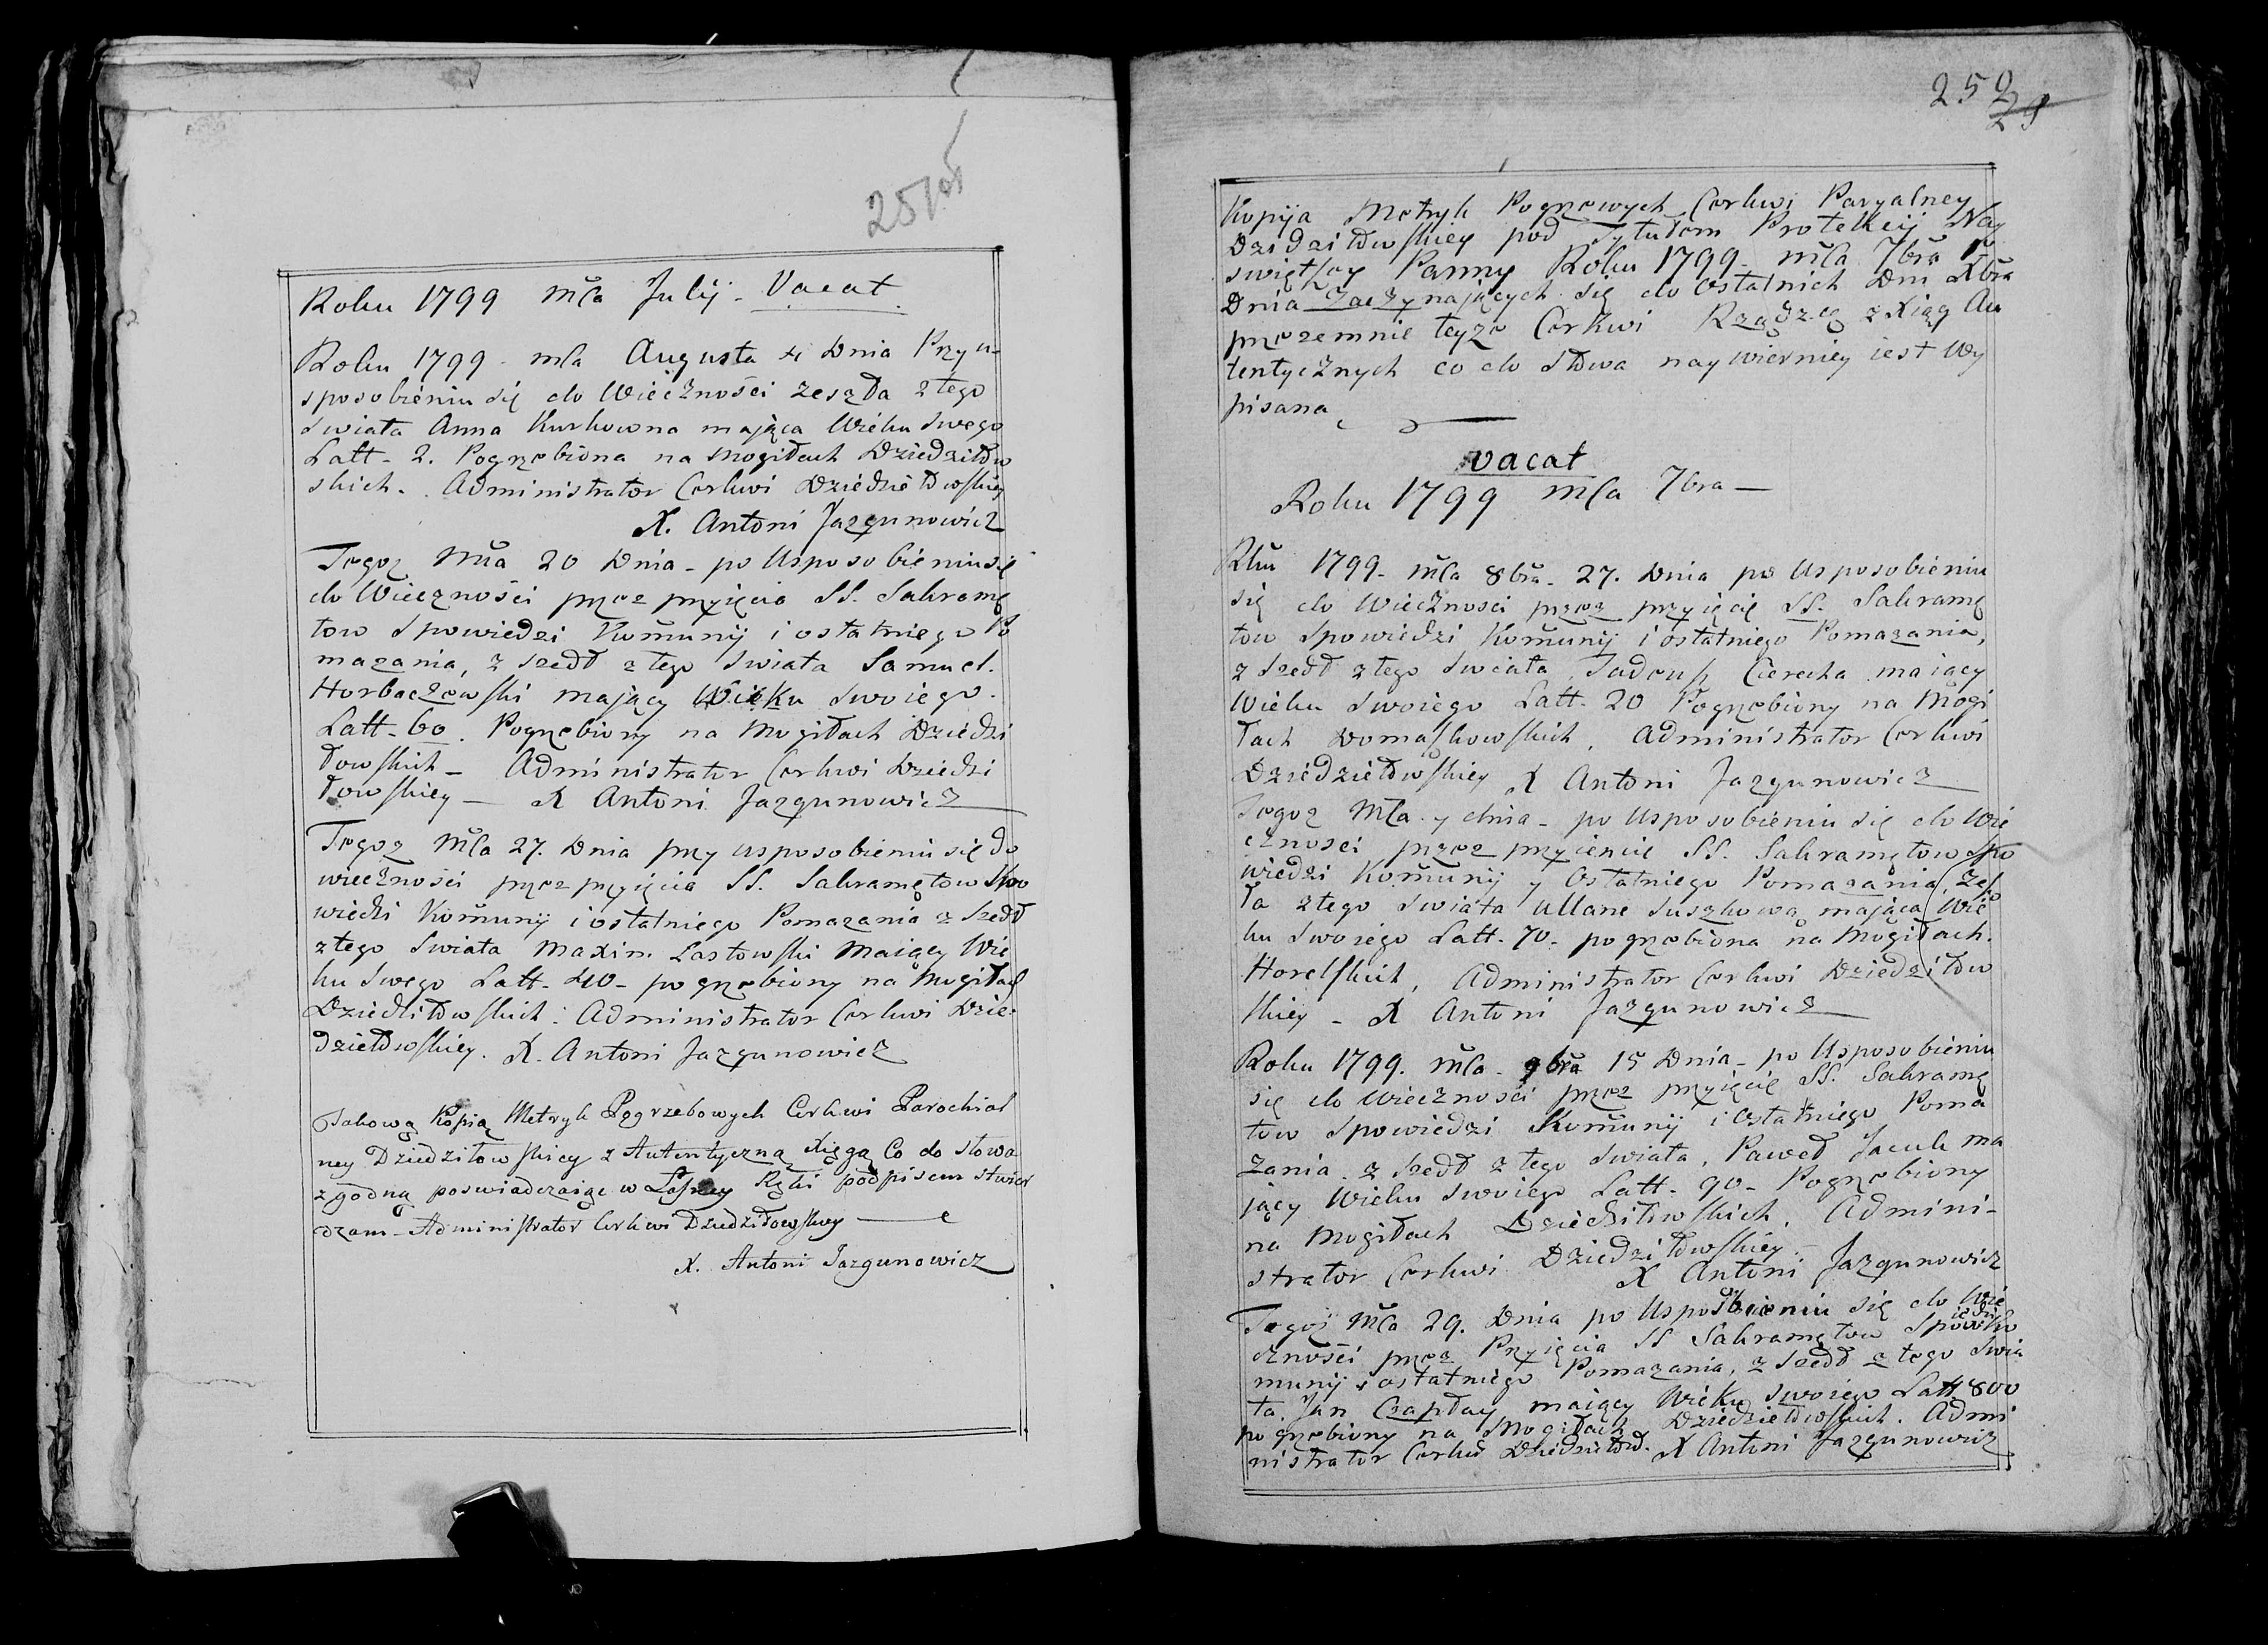 251 об
Roku 1799 mča Julij - Vacat
Roku 1799 - mca Augusta 4 Dnia Przy u-
sposobieniu się do Wieczności zeszła z tego
Swiata Anna Kurkowna mająca Wieku Swego
Latt - 2. Pogrzebiona na Mogiłach Dziedziłow
skich. Administrator Cerkwi Dziedziełowskiey
X. Antoni Jazgunowicz
Tegoz Mča 20 Dnia - po Usposobieniu się
do Wieczności przez przyięcia SS. Sakramę
tow Spowiedzi Kom̃unij i ostatniego Po
mazania, z szedł z tego Swiata Samuel.
Horbaczewski mający Wieku Swoiego.
Latt - 60. Pogrzebiony na Mogiłach Dziedzi
łowskich - Administrator Cerkwi Dziedzi
łowskiey - X Antoni Jazgunowicz
Tegoz Mča 27. Dnia przy usposobieniu się do
wieczności przez przyięcia SS. Sakramętow Spo
wiedzi Kom̃unij i ostatniego Pomazania z szedł
z tego Swiata Maxim Lastowski Maiący Wie
ku Swego Latt - 40 - pogrzebiony na Mogiłach
Dziedziłowskich. Administrator Cerkwi Dzie-
dziełowskiey. X. Antoni Jazgunowicz
Takową Kopią Metryk Pogrzebowych Cerkwi Parochial
ney Dziedziłowskiey z Autentyczną Xięgą Co do słowa
zgodną poswiadczaiąc własney Ręki podpisem stwier
dzam - Administrator Cerkwi Dziedziłowskiey
X. Antoni Jazgunowicz
252
29
Kopija Metryk Pogrzewych Cerkwi Paryalney
Dzidziłowskiey pod Tytułem Protekcij Nay
swiętszey Panny Roku 1799 - mča 7bra 1o
Dnia zaczynających się do ostatnich Dni Xbra
przezemnie teyze Cerkwi Rządzcę z Xiąg Au
tentycznych co do Słowa naywierniey iest Wy
pisana
vacat
Roku 1799 mča 7bra —
Rku 1799 - mča 8bra - 27. Dnia po Usposobieniu
się do Wieczności przez przyięcię SS. Sakramę
tow Spowiedzi Kom̃unij i ostatniego Pomazania,
z szedł z tego Swiata, Tadeusz Cierecha maiący
Wieku Swoiego Latt - 20 Pogrzebiony na Mogi
łach Domaszkowskich, Administrator Cerkwi
Dziedziełowskiey X Antoni Jazgunowicz
Tegoz Mča y dnia - po Usposobieniu się do Wie
czności przez przyięcie SS. Sakramętow Spo
wiedzi Kom̃unij y Ostatniego Pomazania, zesz
ła z tego Swiata Ullane Suszkowa mająca Wie
ku Swoiego Latt. 70 - pogrzebiona na Mogiłach.
Horelskich, Administrator Cerkwi Dziedziłow
skiey - X Antoni Jazgunowicz
Roku 1799. mča - 9bra 15 Dnia - po Usposobieniu
się do Wieczności przez przyięcię SS. Sakramę
tow Spowiedzi Kom̃unij i Ostatniego Poma
zania z szedł z tego Swiata, Paweł Jacuk ma
jący Wieku Swoiego Latt - 90 - Pogrzebiony
na Mogiłach Dziedziłowskich, Admini-
strator Cerkwi Dziedziłowskiey.
X Antoni Jazgunowicz
Tegoż Mča 29. Dnia po Usposobieniu się do Wie
czności przez Przyięcia SS Sakramętow Spowiedzi Ko
munij i ostatniego Pomazania, z szedł z tego Swia
ta. Jan Czapłay maiący Wieku Swoiego Latt 80
pogrzebiony na Mogiłach Dziedziełowskich. Admi
nistrator Cerkwi Dziedziełow. X Antoni Jazgunowicz